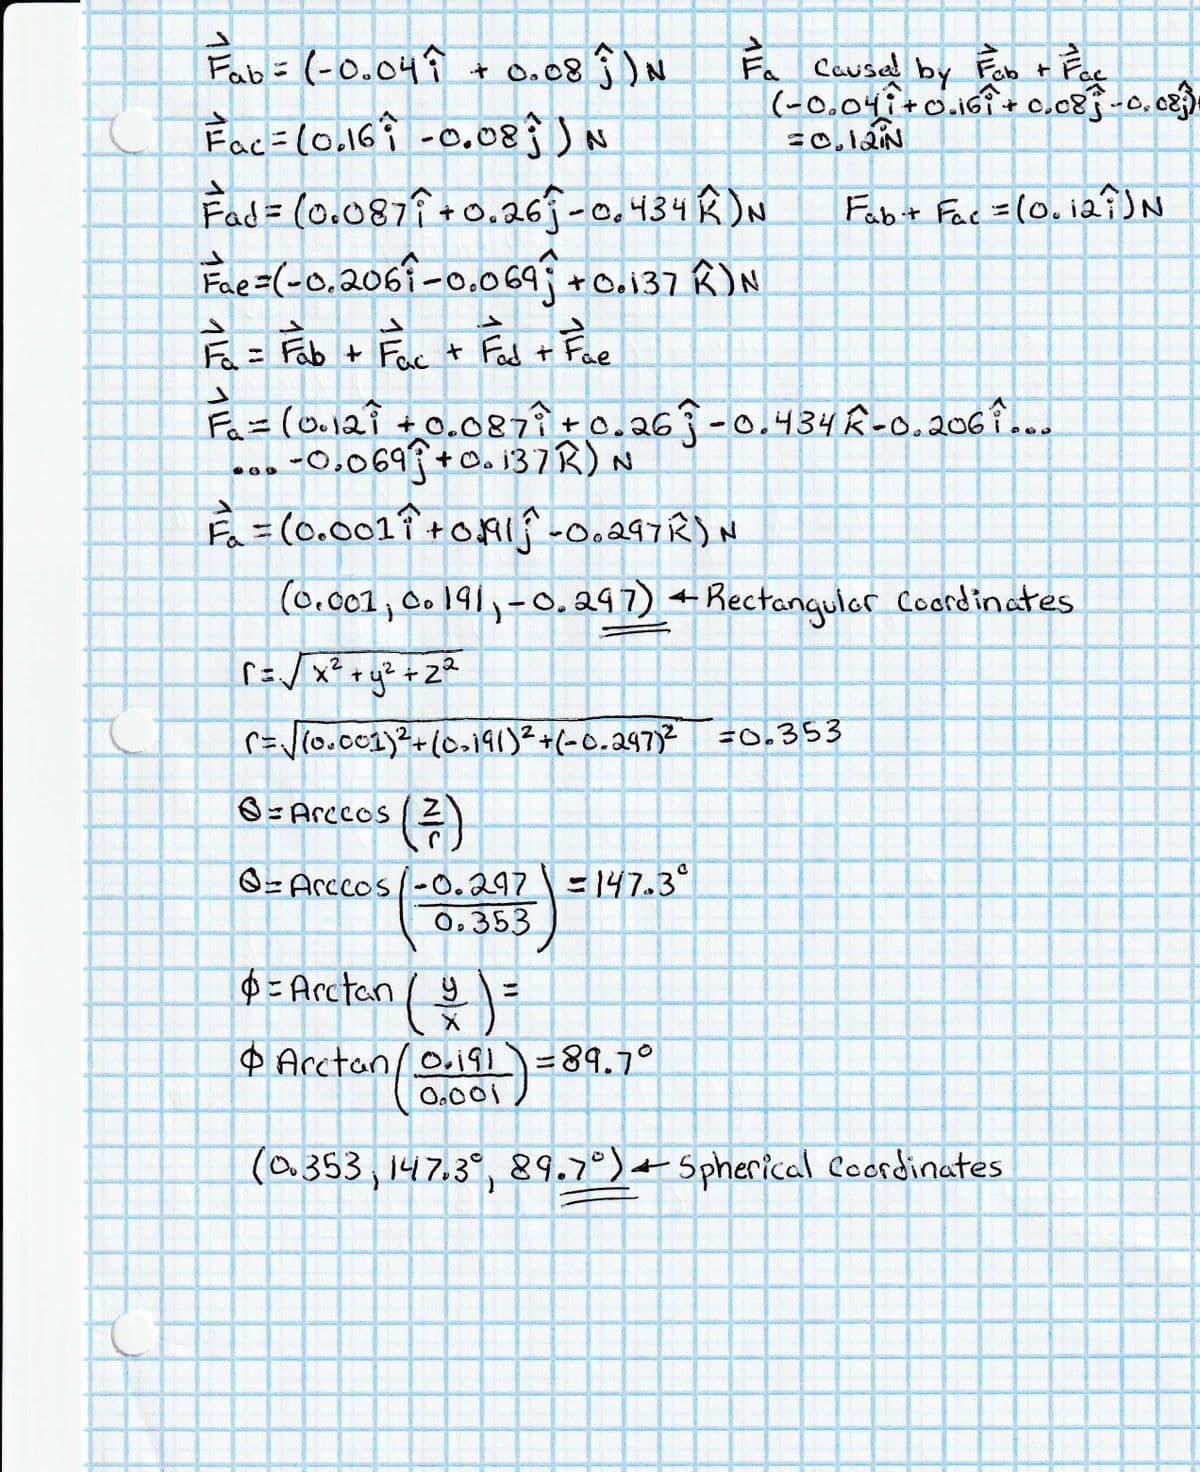 F⃗ab = (-0.04î + 0.08ĵ)N
F⃗a Caused by F⃗ab + F⃗ac
(-0.04î+0.16î+0.08ĵ-0.08ĵ)
=0.12îN
F⃗ac=(0.16î -0.08ĵ)N
F⃗ad=(0.087î+0.26ĵ-0.434k̂)N
Fab+ Fac =(0.12î)N
F⃗ae=(-0.206î-0.069ĵ+0.137k̂)N
F⃗a = F⃗ab + F⃗ac + F⃗ad + F⃗ae
F⃗a=(0.12î +0.087î+0.26ĵ-0.434k̂-0.206î...
... -0.069ĵ+0.137k̂) N
F⃗a=(0.001î+0.191ĵ-0.297k̂)N
(0.001, 0.191, -0.297) ← Rectangular Coordinates
r=√x²+y²+z²
r=√(0.001)²+(0.191)²+(-0.297)² =0.353
θ=Arccos(z/r)
θ=Arccos(-0.297/0.353)=147.3°
ϕ=Arctan(y/x)=
ϕ Arctan(0.191/0.001)=89.7°
(0.353, 147.3°, 89.7°) ← Spherical Coordinates